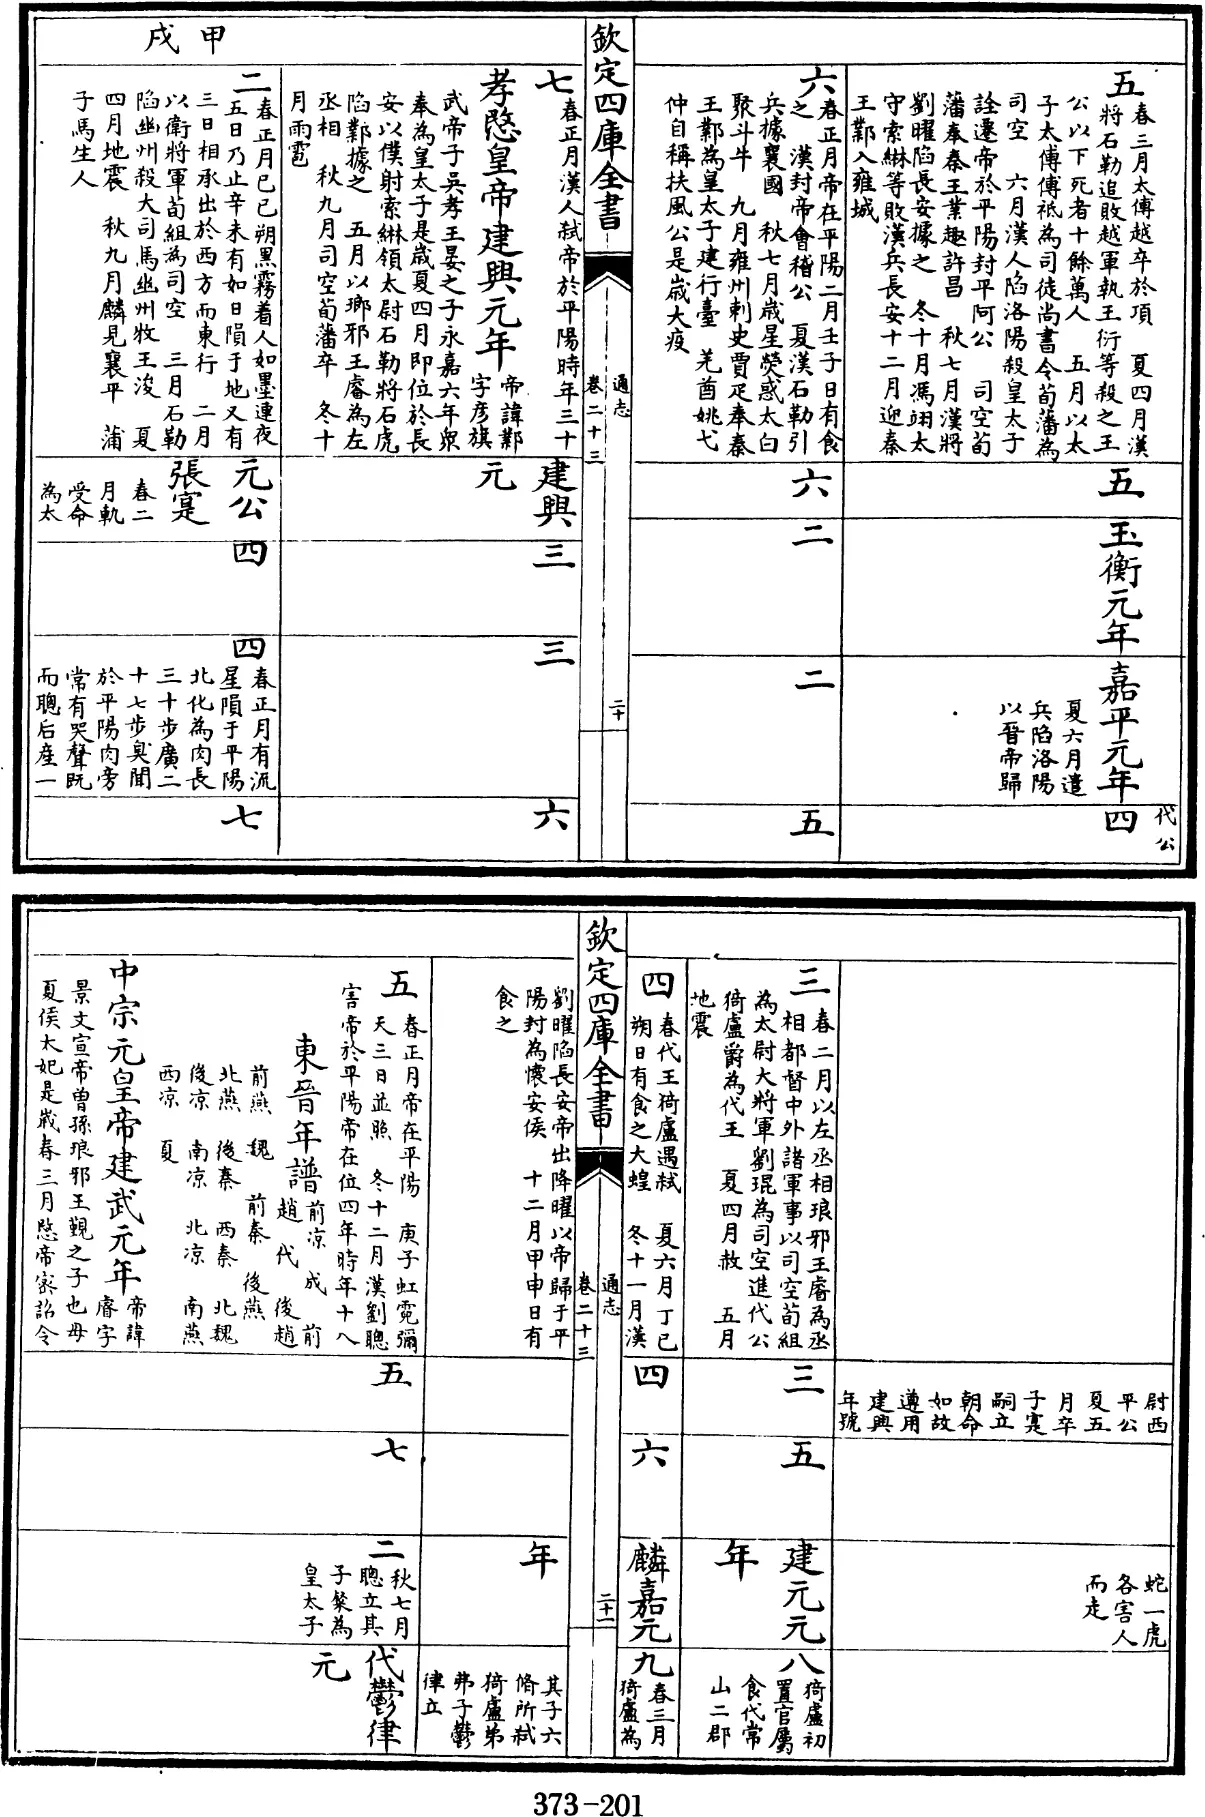 五
春三月太傅越卒於項　夏四月漢
將石勒追敗越軍執王衍等殺之王
公以下死者十餘萬人　五月以太
子太傅傅祗為司徒尚書令荀藩為
司空　六月漢人陷洛陽殺皇太子
詮遷帝於平陽封平阿公　司空荀
藩奉秦王業趣許昌　秋七月漢將
劉曜陷長安據之　冬十月馮翊太
守索綝等敗漢兵長安十二月迎秦
王鄴入雍城
五
玉衡元年
嘉平元年
夏六月遣
兵陷洛陽
以晉帝歸
四
代公
六
春正月帝在平陽二月壬子日有食
之　漢封帝會稽公　夏漢石勒引
兵據襄國　秋七月歲星熒惑太白
聚斗牛　九月雍州刺史賈疋奉秦
王鄴為皇太子建行臺　羌酋姚弋
仲自稱扶風公是歲大疫
六
二
二
五
欽定四庫全書
通志
卷二十三
二十
七
春正月漢人弒帝於平陽時年三十
孝愍皇帝建興元年
帝諱鄴
字彦旗
武帝子吳孝王晏之子永嘉六年衆
奉為皇太子是歲夏四月即位於長
安以僕射索綝領太尉石勒將石虎
陷鄴據之　五月以瑯邪王睿為左
丞相　秋九月司空荀藩卒　冬十
月雨雹
建興
元
三
三
六
甲戌
二
春正月己巳朔黑霧着人如墨連夜
五日乃止辛未有如日隕于地又有
三日相承出於西方而東行　二月
以衛將軍荀組為司空　三月石勒
陷幽州殺大司馬幽州牧王浚　夏
四月地震　秋九月麟見襄平　蒲
子馬生人
元公
張寔
春二
月軌
受命
為太
四
四
春正月有流
星隕于平陽
北化為肉長
三十步廣二
十七步臭聞
於平陽肉旁
常有哭聲既
而聰后産一
七
尉西
平公
夏五
月卒
子寔
嗣立
朝命
如故
遵用
建興
年號
蛇一虎
各害人
而走
三
春二月以左丞相琅邪王睿為丞
相都督中外諸軍事以司空荀組
為太尉大將軍劉琨為司空進代公
猗盧爵為代王　夏四月赦　五月
地震
三
五
建元元
年
八
猗盧初
置官屬
食代常
山二郡
四
春代王猗盧遇弒　夏六月丁巳
朔日有食之大蝗　冬十一月漢
四
六
麟嘉元
九
春三月
猗盧為
欽定四庫全書
通志
卷二十三
二十一
劉曜陷長安帝出降曜以帝歸于平
陽封為懷安侯　十二月甲申日有
食之
年
其子六
脩所弒
猗盧弟
弗子鬱
律立
五
春正月帝在平陽　庚子虹霓彌
天三日並照　冬十二月漢劉聰
害帝於平陽帝在位四年時年十八
東晉年譜
前凉　成　前
趙　代　後趙
前燕　魏　前秦　後燕
北燕　後秦　西秦　北魏
後凉　南凉　北凉　南燕
西凉　夏
中宗元皇帝建武元年
帝諱
睿字
景文宣帝曽孫琅邪王覲之子也母
夏侯太妃是歲春三月愍帝密詔令
五
七
二
秋七月
聰立其
子粲為
皇太子
代鬱律
元
373-201